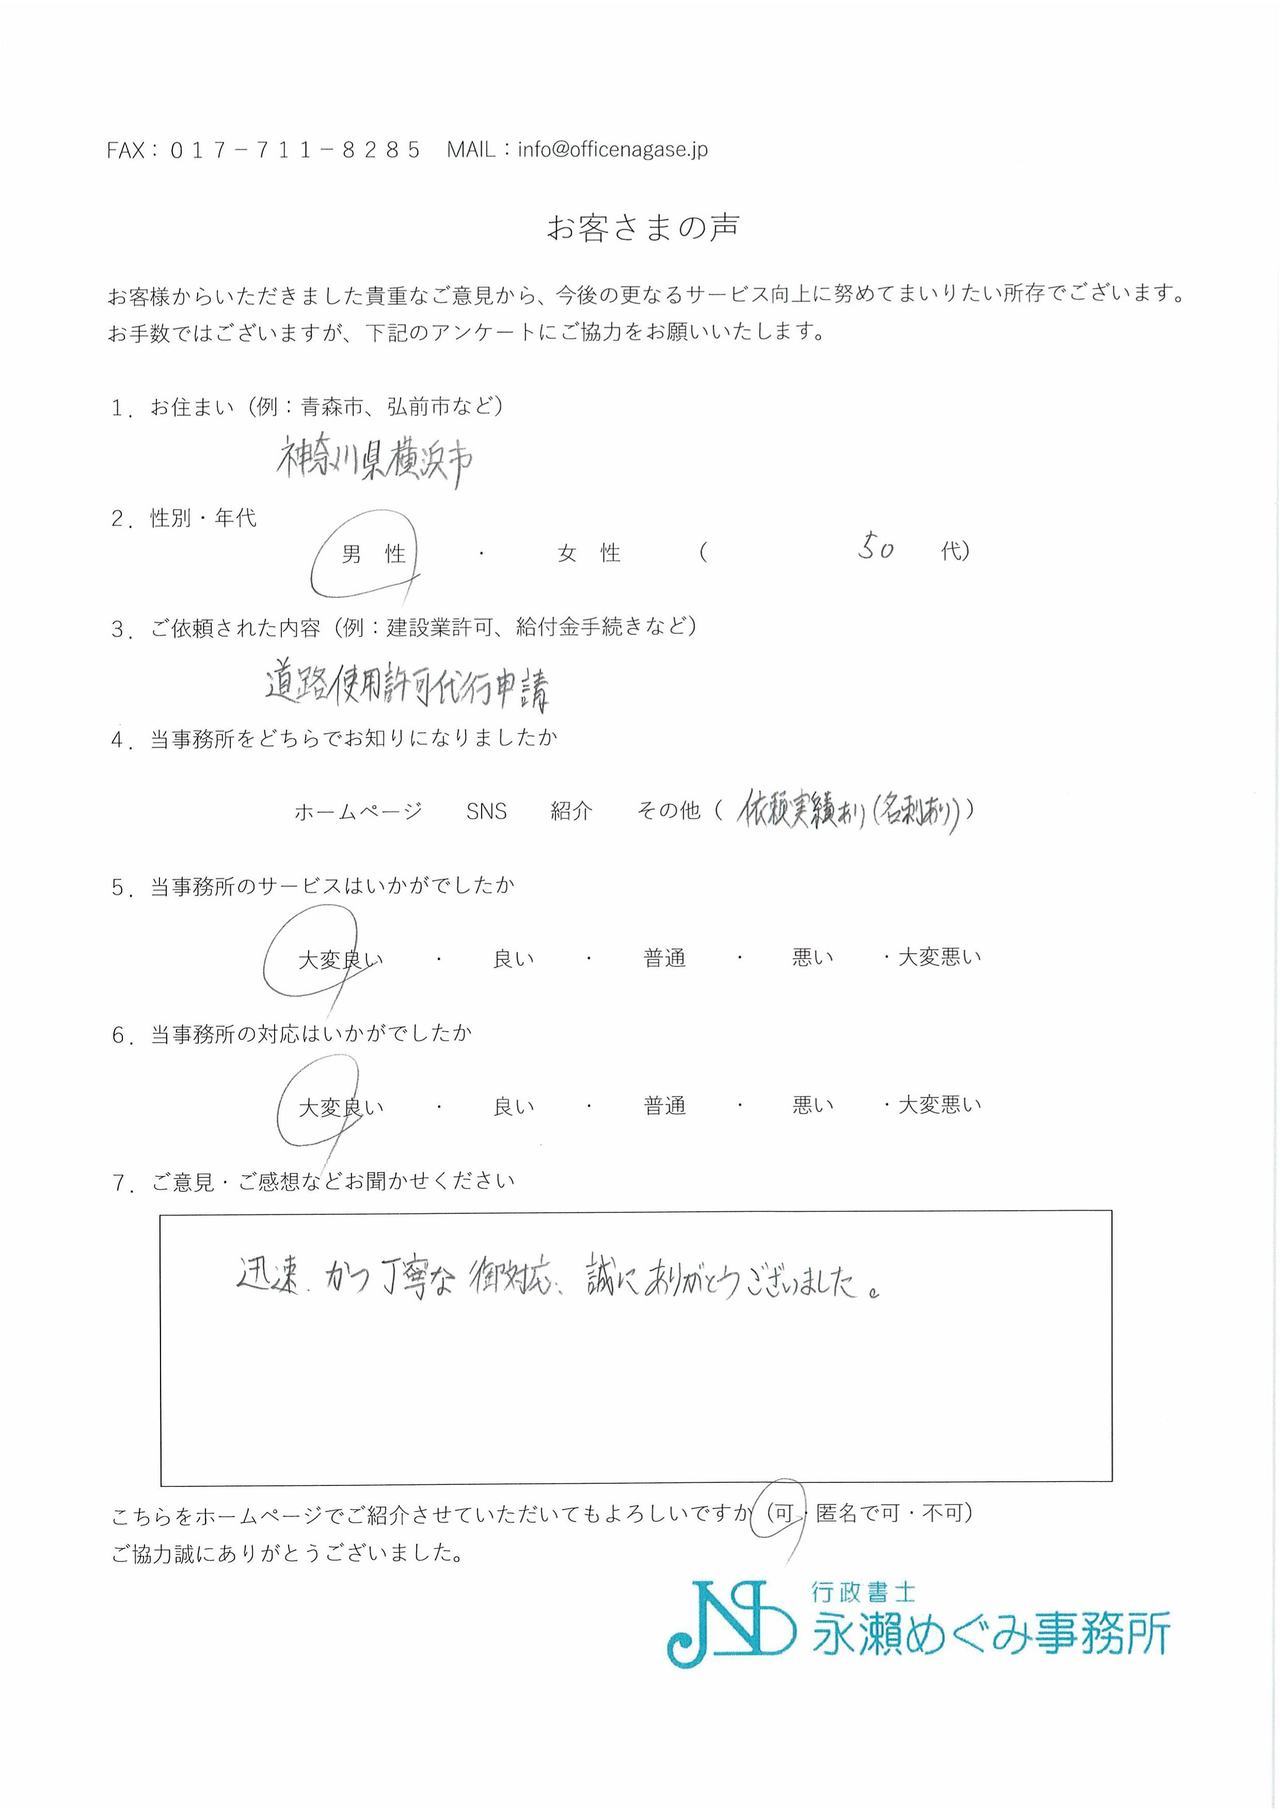 FAX：０１７－７１１－８２８５　MAIL：info@officenagase.jp
お客さまの声
お客様からいただきました貴重なご意見から、今後の更なるサービス向上に努めてまいりたい所存でございます。
お手数ではございますが、下記のアンケートにご協力をお願いいたします。
１．お住まい（例：青森市、弘前市など）
神奈川県横浜市
２．性別・年代
男　性　・　女　性　（　50　代）
３．ご依頼された内容（例：建設業許可、給付金手続きなど）
道路使用許可代行申請
４．当事務所をどちらでお知りになりましたか
ホームページ　SNS　紹介　その他（依頼実績あり（名刺あり））
５．当事務所のサービスはいかがでしたか
大変良い　・　良い　・　普通　・　悪い　・大変悪い
６．当事務所の対応はいかがでしたか
大変良い　・　良い　・　普通　・　悪い　・大変悪い
７．ご意見・ご感想などお聞かせください
迅速、かつ丁寧な御対応、誠にありがとうございました。
こちらをホームページでご紹介させていただいてもよろしいですか（可・匿名で可・不可）
ご協力誠にありがとうございました。
行政書士
永瀬めぐみ事務所